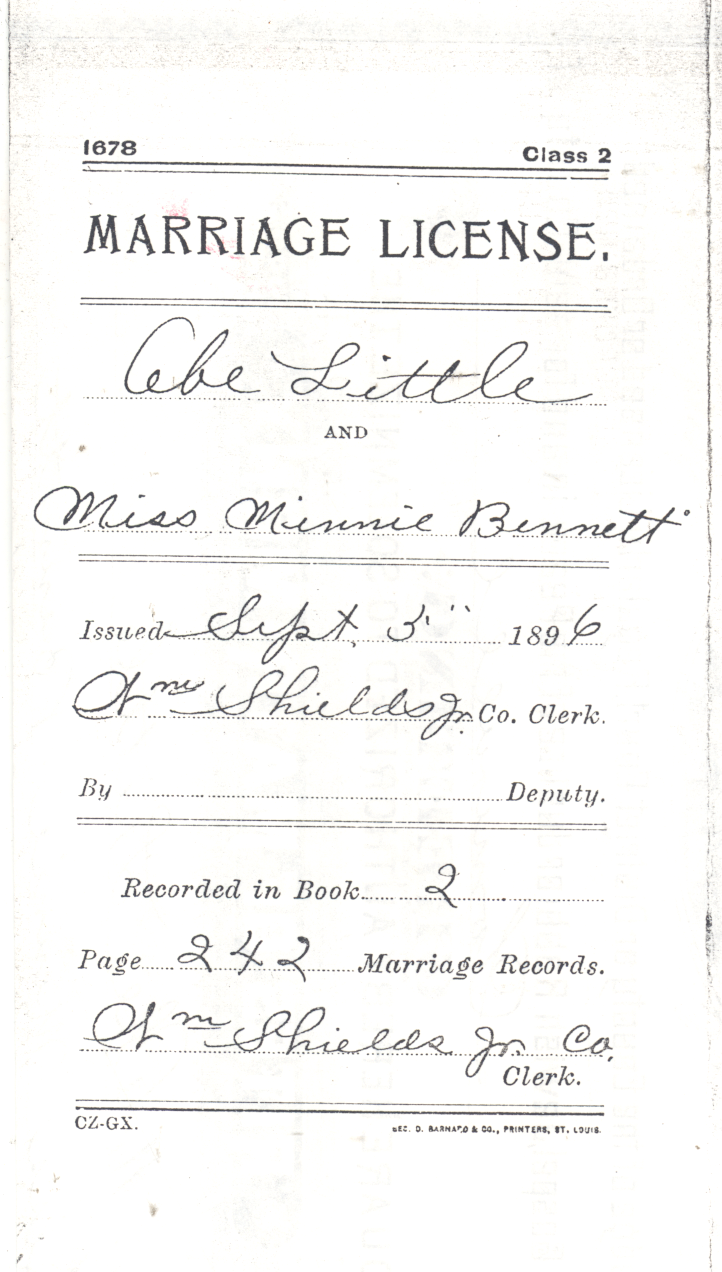 1678 Class 2
MARRIAGE LICENSE.
Abe Little
AND
Miss Minnie Bennett
Issued Sept. 5" 1896
Wm Shields Jr. Co. Clerk.
By Deputy.
Recorded in Book 2
Page 242 Marriage Records.
Wm Shields Jr. Co.
Clerk.
CZ-GX.
GEO. D. BARNARD & CO., PRINTERS, ST. LOUIS.